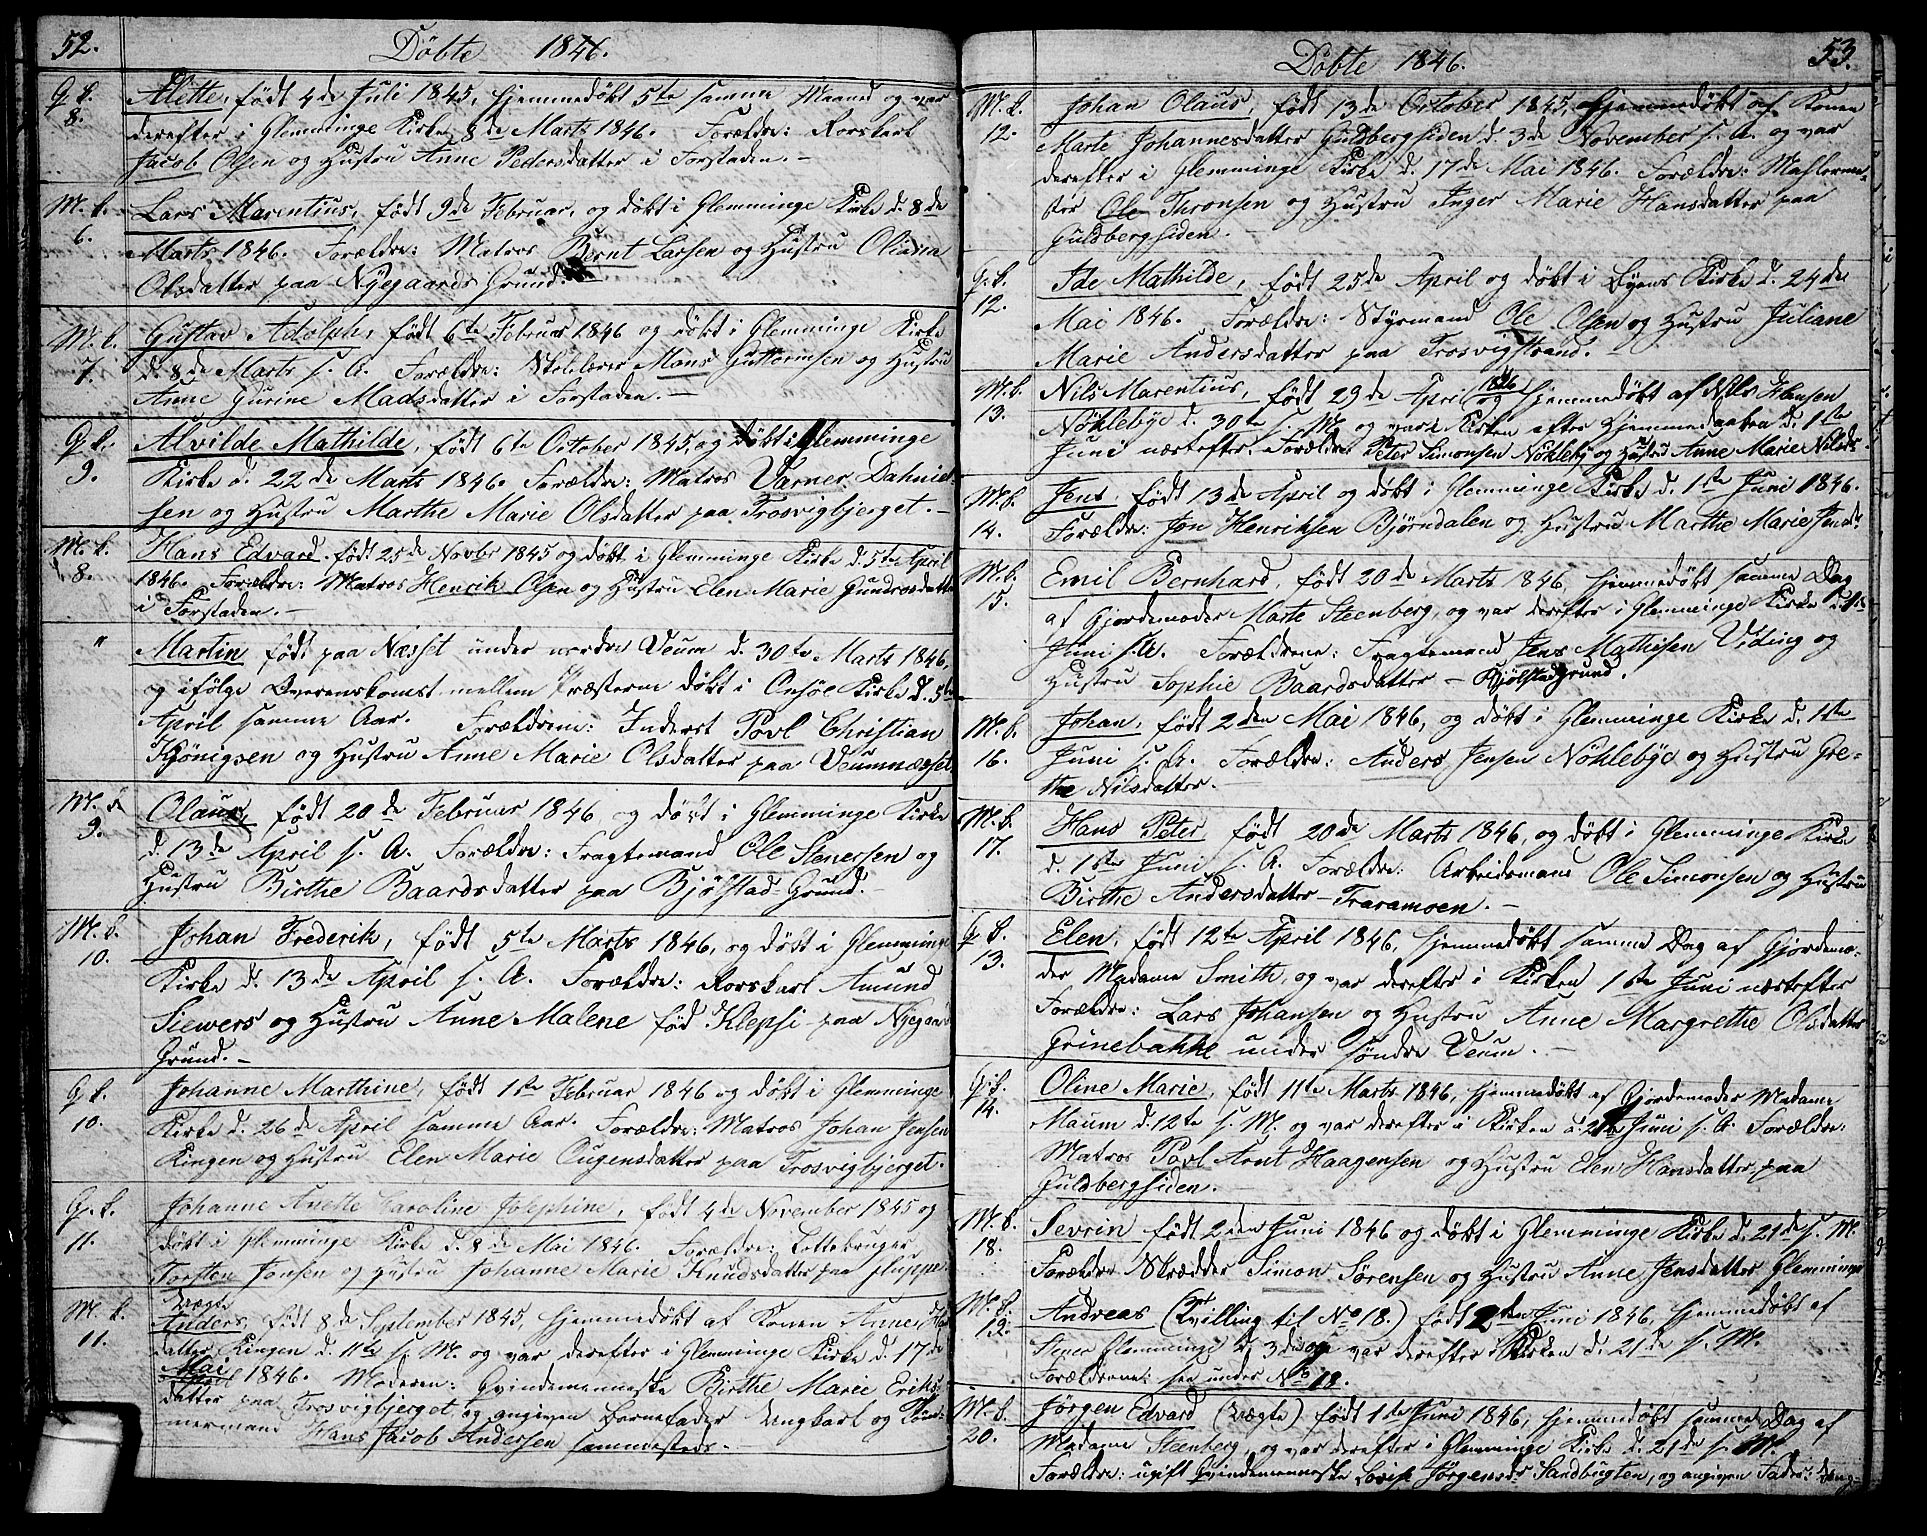 52.
Døbte 1846.
Q. k. 8. Alette, født 4de Juli 1845, hjemmedøbt 5te samme Maaned og var
derefter i Glemminge Kirke 8de Marts 1846. Forældre: Rorskarl
Jacob Olsen og Hustru Anne Pedersdatter i Forstaden. -
M. k. 6. Lars Marentius, født 9de Februar, og døbt i Glemminge Kirke d. 8de
Marts 1846. Forældre: Matros Bernt Larsen og Hustru Oliana
Olsdatter paa Nyegaards Grund.
M. k. 7. Gustav Adolph, født 6te Februar 1846 og døbt i Glemminge Kirke
d. 8de Marts s. A. Forældre: Skolelærer Mons Guttormsen og Hustru
Anne Gurine Madsdatter i Forstaden. -
Q. k. 9. Alvilde Mathilde, født 6te October 1845, og døbt i Glemminge
Kirke d. 22de Marts 1846. Forældre: Matros Varner Dahniel-
sen og Hustru Marthe Marie Olsdatter paa Trosvigbjerget. -
M. k. 8. Hans Edvard, født 25de Novbr 1845 og døbt i Glemminge Kirke d. 5te April
1846. Forældre: Matros Henrik Olsen og Hustru Elen Marie Gundrosdatter
i Forstaden. -
" Martin født paa Næsset under nordre Veum d. 30te Marts 1846,
og ifølge Overenskomst mellem Præsterne døbt i Onsøe Kirke d. 5te
April samme Aar. Forældrene: Inderst Povl Christian
Kjönigsen og Hustru Anne Marie Olsdatter paa Veumnæsset
M. k. 9. Olaus, født 20de Februar 1846 og døbt i Glemminge Kirke
d. 13de April s. A. Forældre: Fragtemand Ole Stenersen og
Hustru Birthe Baardsdatter paa Bjølstad-Grund. -
M. k. 10. Johan Frederik, født 5te Marts 1846, og døbt i Glemminge
Kirke d. 13de April s. A. Forældre: Rorskarl Amund
Siewers og Hustru Anne Malene fød Klepsi paa Nyegaards
Grund. -
Q. k. 10. Johanne Marthine, født 1ste Februar 1846 og døbt i Glemminge
Kirke d. 26de April samme Aar. Forældre: Matros Johan Jensen
Ringen og Hustru Elen Marie Eugensdatter paa Trosvigbjerget.
Q. k. 11. Johanne Anette Karoline Josephine, født 4de November 1845 og
døbt i Glemminge Kirke d. 8de Mai 1846. Forældre:
Torsten Jonsen og Hustru Johanne Marie Knudsdatter paa
M. k. 11. Uægte
Anders, født 8de September 1845, hjemmedøbt af Konen Anne
datter Ringen d. 11te s. M. og var derefter i Glemminge Kirke d. 17de
Mai 1846. Moderen: Qvindemenneske Birthe Marie Eriks-
datter paa Trosvigbjerget, og angiven Barnefader Ungkarl og Tøm-
mermand Hans Jacob Andersen sammesteds. -
53.
Døbte 1846.
M. k. 12. Johan Olaus, født 13de October 1845, hjemmedøbt af Konen
Marte Johannesdatter Guldbergsiden d. 3de November s. A. og var
derefter i Glemminge Kirke d. 17de Mai 1846. Forældre: Maslerme-
ster Ole Thronsen og Hustru Inger Marie Hansdatter paa
Guldbergsiden. -
Q. k. 12. Ide Mathilde, født 25de April og døbt i Øyens Kirke d. 24de
Mai 1846. Forældre: Styrmand Ole Olsen og Hustru Juliane
Marie Andersdatter paa Trosvigstrand. -
M. k. 13. Nils Marentius, født 29de April 1846 og hjemmedøbt af Nils Hansen
Nøkleby d. 30te s. M. og var i Kirken efter Hjemmedaaben d. 1ste
Juni næstefter. Forældre Peter Simonsen Nøkleby og Hustru Anne Marie Nilsds.
M. k. 14. Jens, født 13de April og døbt i Glemminge Kirke d. 1ste Juni 1846.
Forældre: Jon Henriksen Bjørndalen og Hustru Marthe Marie Jensd.
M. k. 15. Emil Bernhard, født 20de Marts 1846, hjemmedøbt samme Dag
af Gjordemoder Marte Steenberg, og var derefter i Glemminge Kirke d. 1ste
Juni s. A. Forældrene: Fragtemand Jens Mathisen Viding og
Hustru Sophie Baardsdatter - Bjølstadgrund.
M. k. 16. Johan, født 2den Mai 1846, og døbt i Glemminge Kirke d. 1ste
Juni s. A. Forældre: Anders Jensen Nøklebye og Hustru Gre-
the Nilsdatter. -
M. k. 17. Hans Peter, født 20de Marts 1846, og døbt i Glemminge Kirke
d. 1ste Juni s. A. Forældre: Arbeidsmand Ole Simonsen og Hustru
Birthe Andersdatter - Traramoen. -
Q. k. 13. Elen, født 12te April 1846, hjemmedøbt samme Dag af Gjordemo-
der Madame Smith, og var derefter i Kirken 1ste Juni næstefter
Forældre: Lars Johansen og Hustru Anne Margrethe Olsdatter
Grinebakke under søndre Veum. -
Q. k. 14. Oline Marie, født 11te Marts 1846, hjemmedøbt af Gjordemoder Madame
Maum d. 12te s. M. og var derefter i Kirken d. Juni s. A. Forældre:
Matros Povl Arnt Haagensen og Hustru Elen Hansdatter paa
Guldbergsiden.
M. k. 18. Sevrin født 2den Juni 1846 og døbt i Glemminge Kirke d. 21de s. M.
Forældre Skrædder Simon Sørensen og Hustru Anne Jensdatter Glemminge
M. k. 19. Andreas (Tvilling til No 18.) født 2den Juni 1846, hjemmedøbt af
Glemminge d. 3de og var derefter i Kirken d. 21de s. M.
Forældrene: see under No 18.
M. k. 20. Jørgen Edvard (Uægte) født 1ste Juni 1846, hjemmedøbt samme Dag af
Madame Steenberg, og var derefter i Glemminge Kirke d. 21de s. M.
Forældre: ugift Qvindemenneske Lovise Jørgensdr Sandbugten, og angiven Fader: Ung-